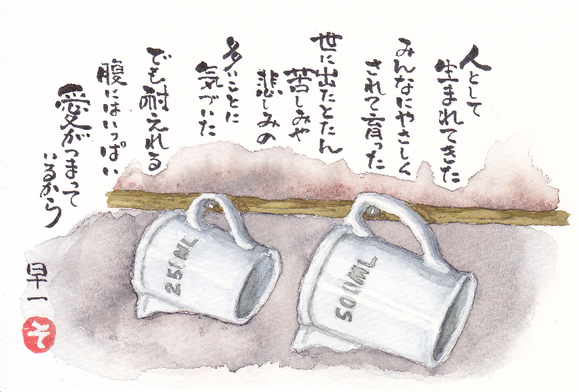 人として
生まれてきた
みんなにやさしく
されて育った
世に出たとたん
苦しみや
悲しみの
多いことに
気づいた
でも耐えれる
腹にはいっぱい
愛がつまって
いるから
早一
そ
250ML
500ML